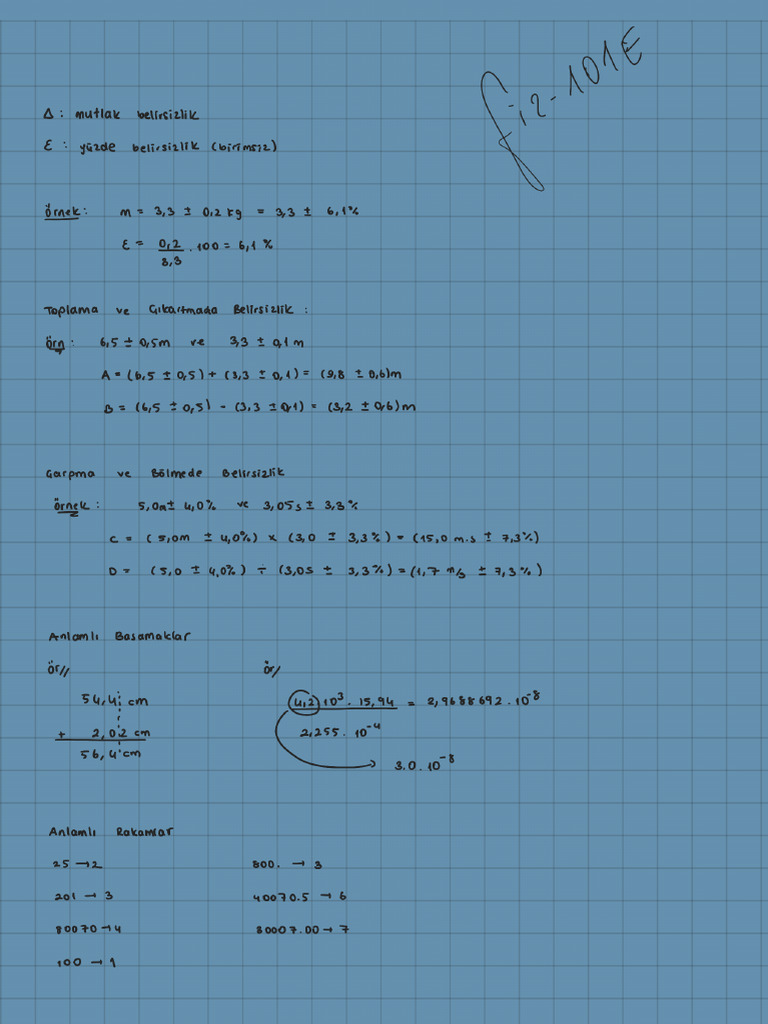 Fiz-101E
Δ : mutlak belirsizlik
ε : yüzde belirsizlik (birimsiz)
Örnek : m = 3,3 ± 0,2 kg = 3,3 ± 6,1%
ε = 0,2/3,3 . 100 = 6,1 %
Toplama ve Çıkartmada Belirsizlik :
Örn : 6,5 ± 0,5m ve 3,3 ± 0,1 m
A = (6,5 ± 0,5) + (3,3 ± 0,1) = (9,8 ± 0,6)m
B = (6,5 ± 0,5) - (3,3 ± 0,1) = (3,2 ± 0,6)m
Çarpma ve Bölmede Belirsizlik
örnek : 5,0m ± 4,0% ve 3,05s ± 3,3%
C = (5,0m ± 4,0%) x (3,0 ± 3,3%) = (15,0 m.s ± 7,3%)
D = (5,0 ± 4,0%) ÷ (3,05 ± 3,3%) = (1,7 m/s ± 7,3%)
Anlamlı Basamaklar
ör// ör/
54,4 cm
+ 2,02 cm
56,4 cm
4,2 10³ . 15,94 = 2,9688692 . 10⁻⁸
2,255 . 10⁻⁴
3.0 . 10⁻⁸
Anlamlı Rakamlar
25 → 2 800. → 3
201 → 3 40070.5 → 6
80070 → 4 80007.00 → 7
100 → 1